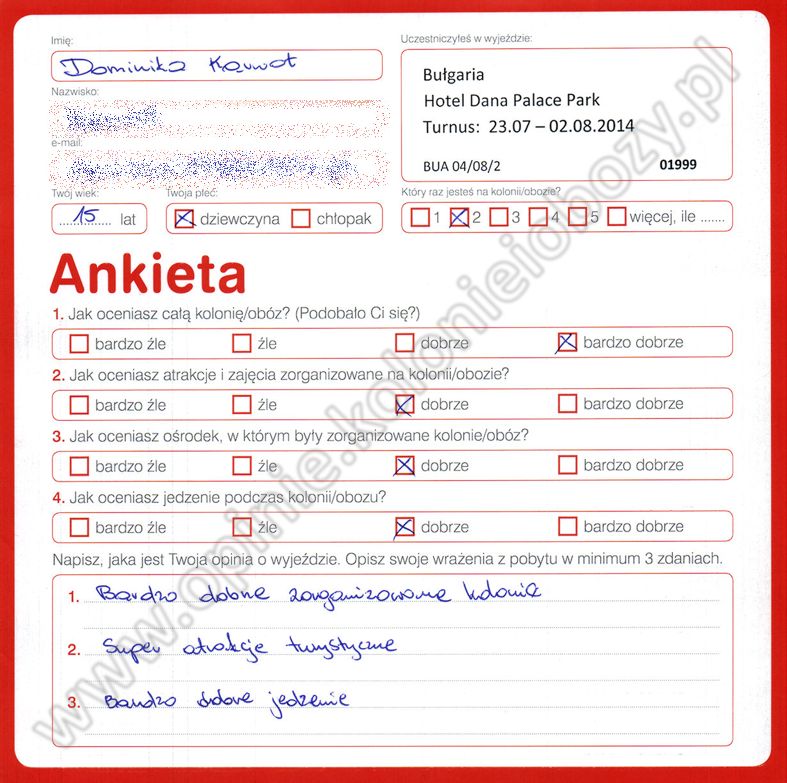 Imię:
Dominika Karwot
Nazwisko:
e-mail:
Twój wiek:
15 lat
Twoja płeć:
dziewczyna chłopak
Uczestniczyłeś w wyjeździe:
Bułgaria
Hotel Dana Palace Park
Turnus: 23.07 – 02.08.2014
BUA 04/08/2 01999
Który raz jesteś na kolonii/obozie?
1 2 3 4 5 więcej, ile .......
Ankieta
1. Jak oceniasz całą kolonię/obóz? (Podobało Ci się?)
bardzo źle źle dobrze bardzo dobrze
2. Jak oceniasz atrakcje i zajęcia zorganizowane na kolonii/obozie?
bardzo źle źle dobrze bardzo dobrze
3. Jak oceniasz ośrodek, w którym były zorganizowane kolonie/obóz?
bardzo źle źle dobrze bardzo dobrze
4. Jak oceniasz jedzenie podczas kolonii/obozu?
bardzo źle źle dobrze bardzo dobrze
Napisz, jaka jest Twoja opinia o wyjeździe. Opisz swoje wrażenia z pobytu w minimum 3 zdaniach.
1. Bardzo dobrze zorganizowana kolonia
2. Super atrakcje turystyczne
3. Bardzo dobre jedzenie
www.opinie.kolonieiobozy.pl